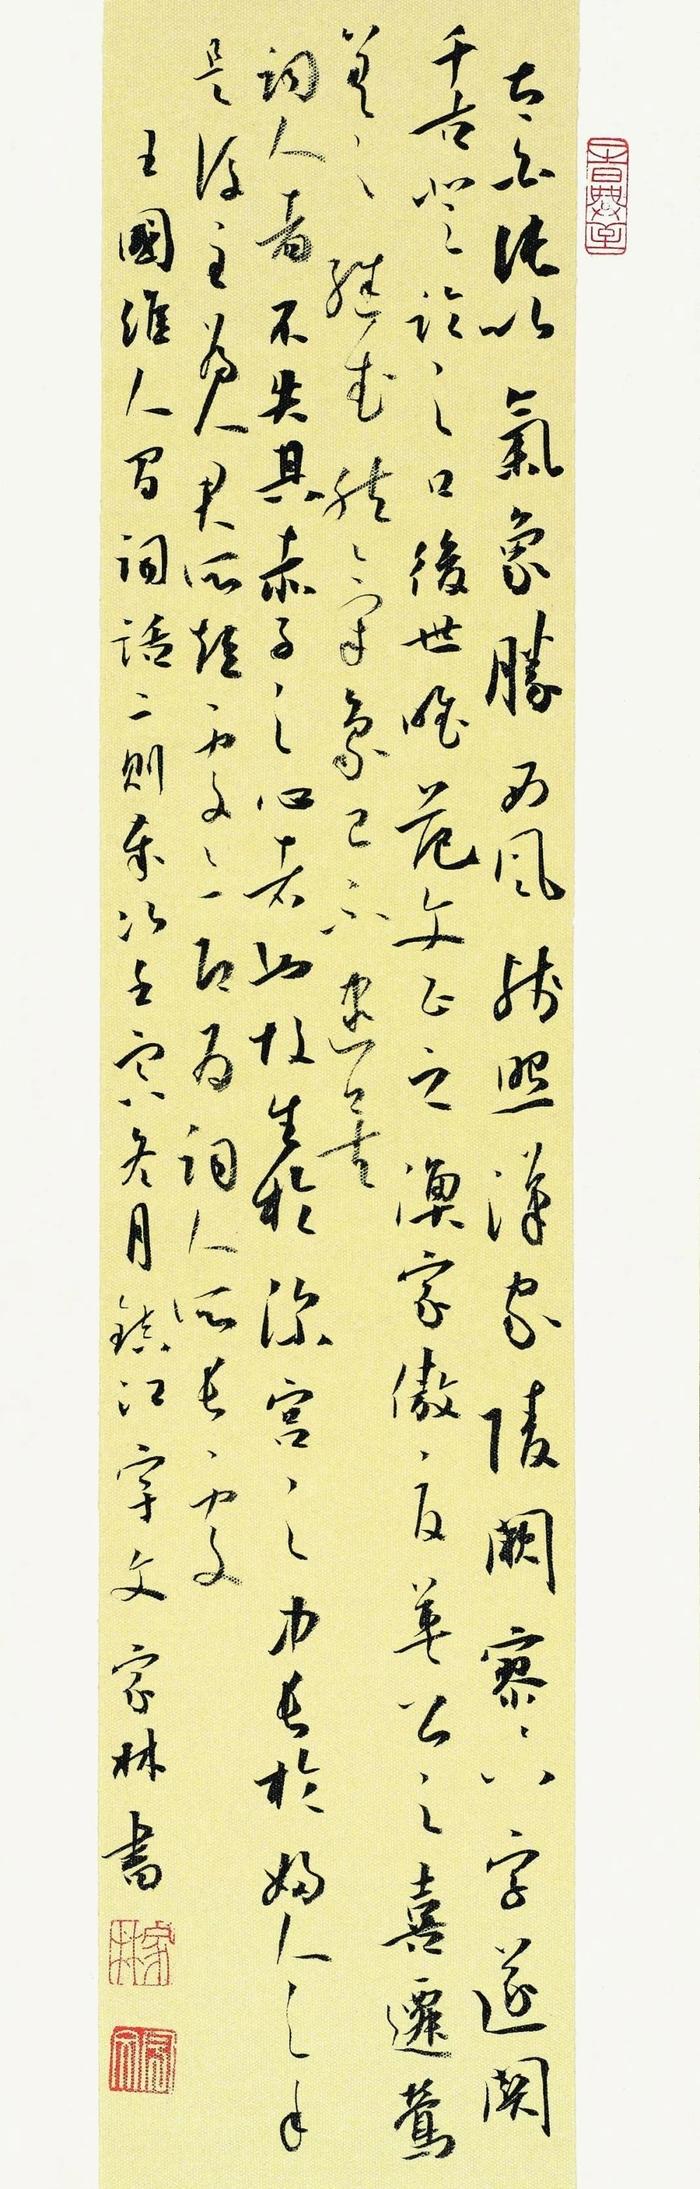 太白純以氣象勝西風殘照漢家陵闕寥寥八字遂關
千古登臨之口後世唯范文正之漁家傲夏英公之喜遷鶯
差足繼武然氣象已不逮矣
詞人者不失其赤子之心者也故生於深宮之中長於婦人之手
是後主為人君所短處亦即為詞人所長處
王國維人間詞話二則歲次壬寅冬月鎮江宇文家林書
家林